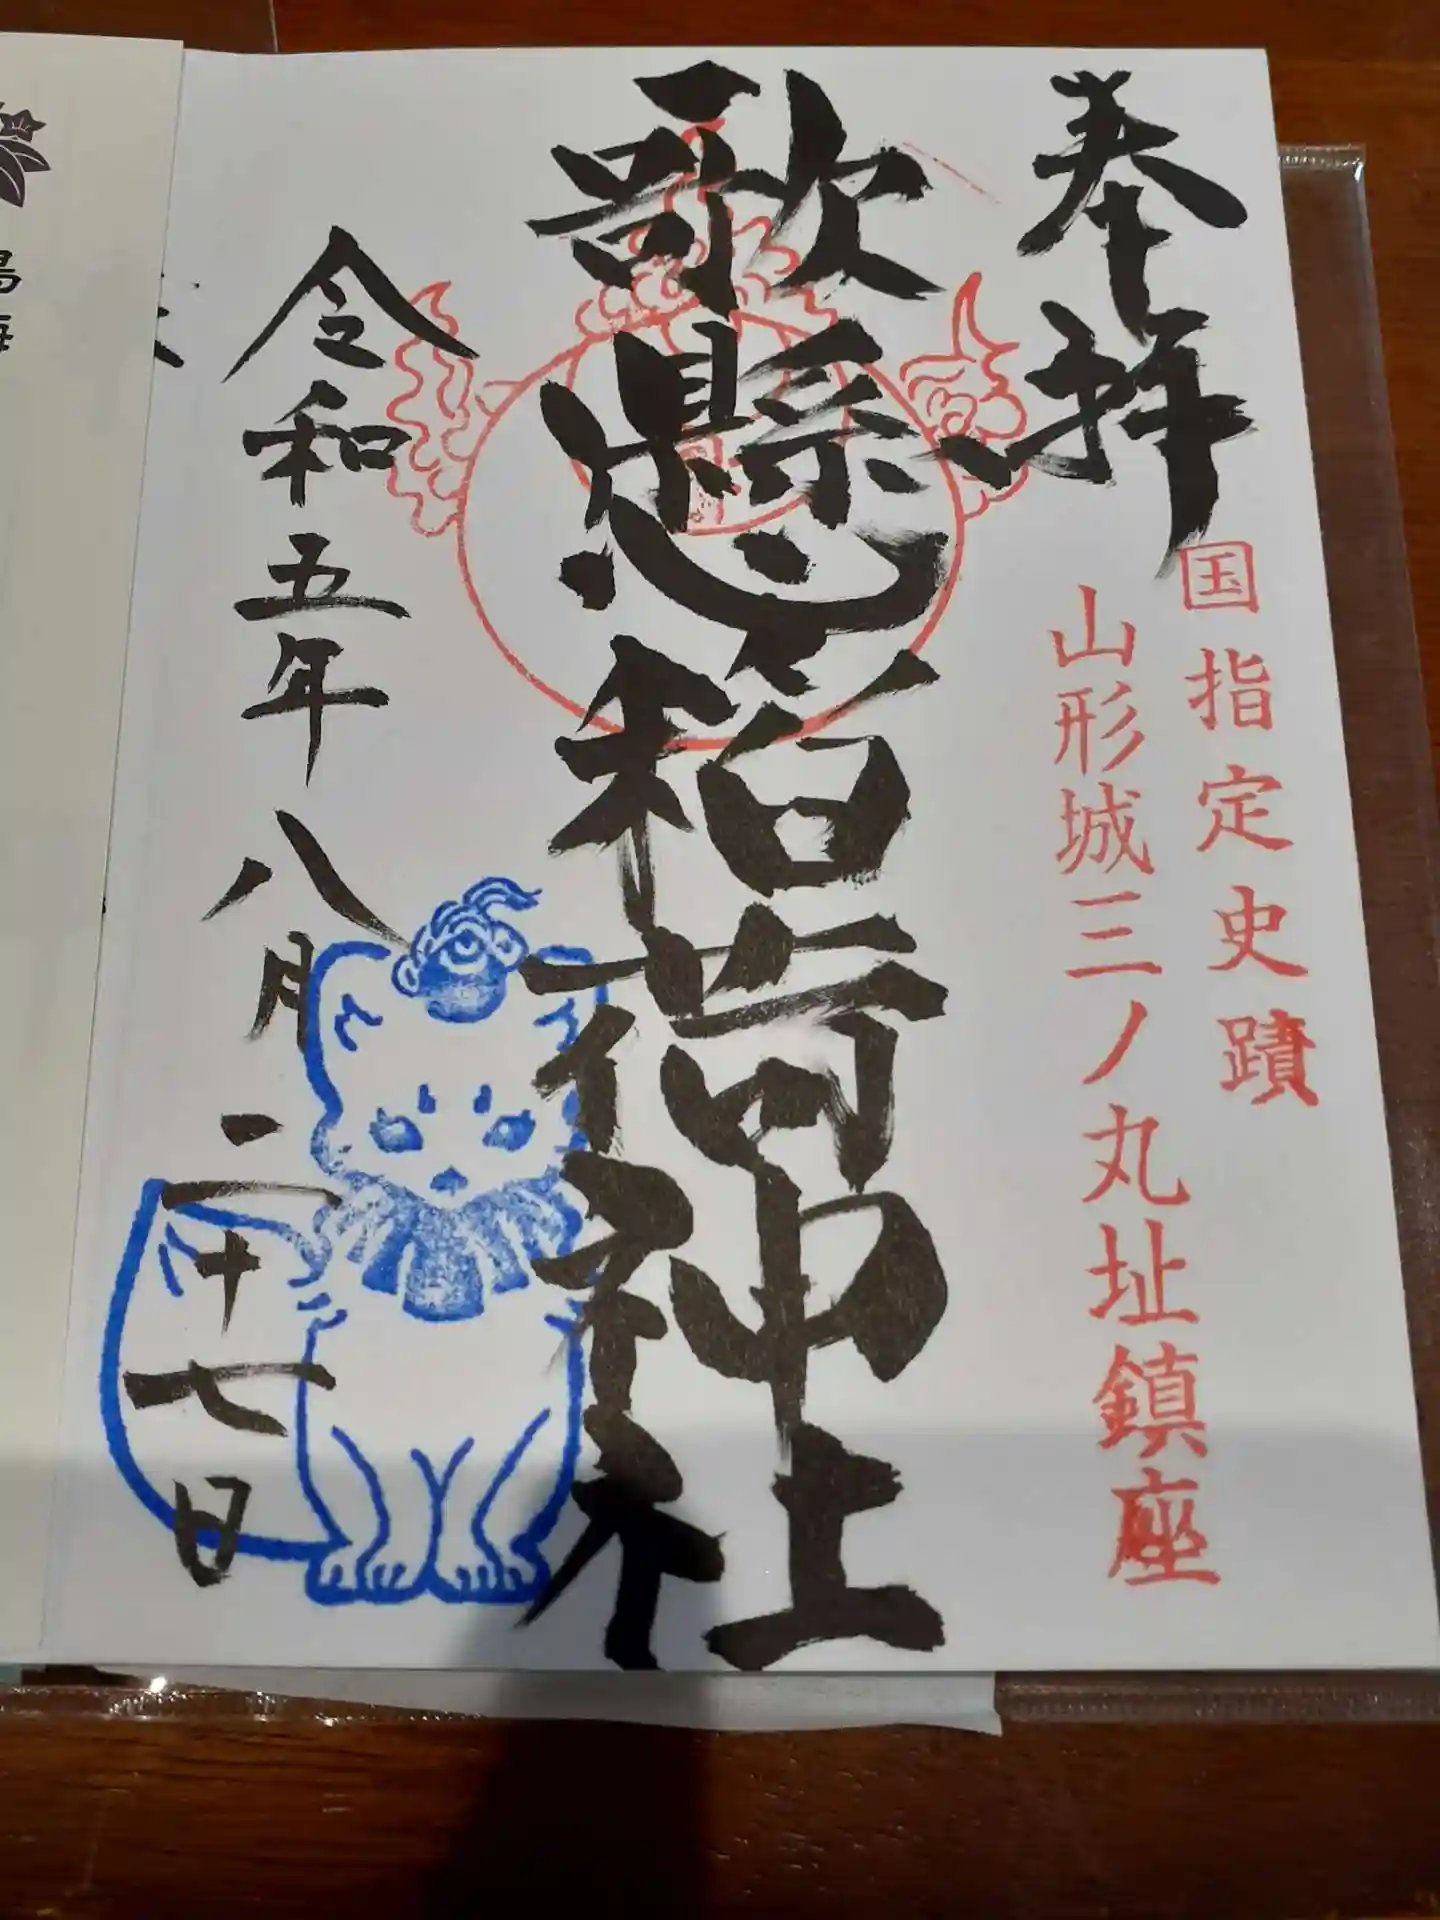 奉拝
国指定史蹟
山形城三ノ丸址鎮座
歌懸稲荷神社
令和五年八月二十七日